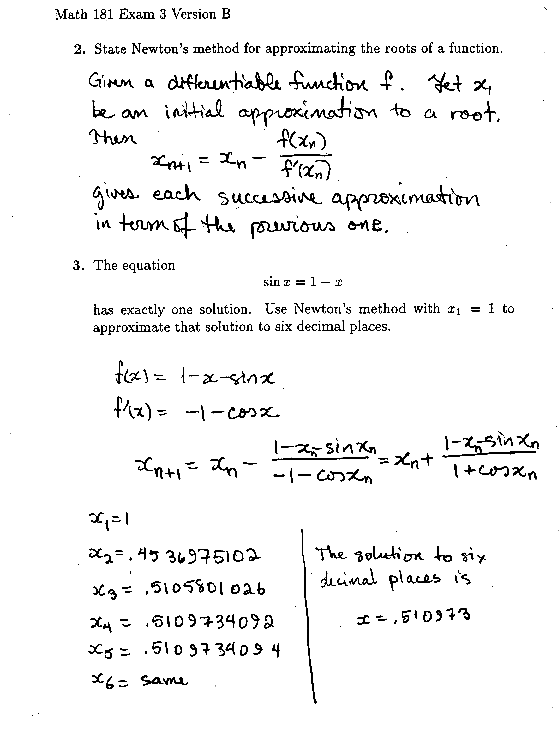 Math 181 Exam 3 Version B
2. State Newton's method for approximating the roots of a function.
Given a differentiable function f. Let x₁
be an initial approximation to a root.
Then
xₙ₊₁ = xₙ − f(xₙ)/f'(xₙ)
gives each successive approximation
in term of the previous one.
3. The equation
sin x = 1 − x
has exactly one solution. Use Newton's method with x₁ = 1 to
approximate that solution to six decimal places.
f(x) = 1-x-sin x
f'(x) = -1-cos x
xₙ₊₁ = xₙ − (1-xₙ-sin xₙ)/(-1-cos xₙ) = xₙ + (1-xₙ-sin xₙ)/(1+cos xₙ)
x₁=1
x₂=.4536975102
x₃ = .5105801026
x₄ = .5109734092
x₅ = .5109734094
x₆= same
The solution to six
decimal places is
x = .510973